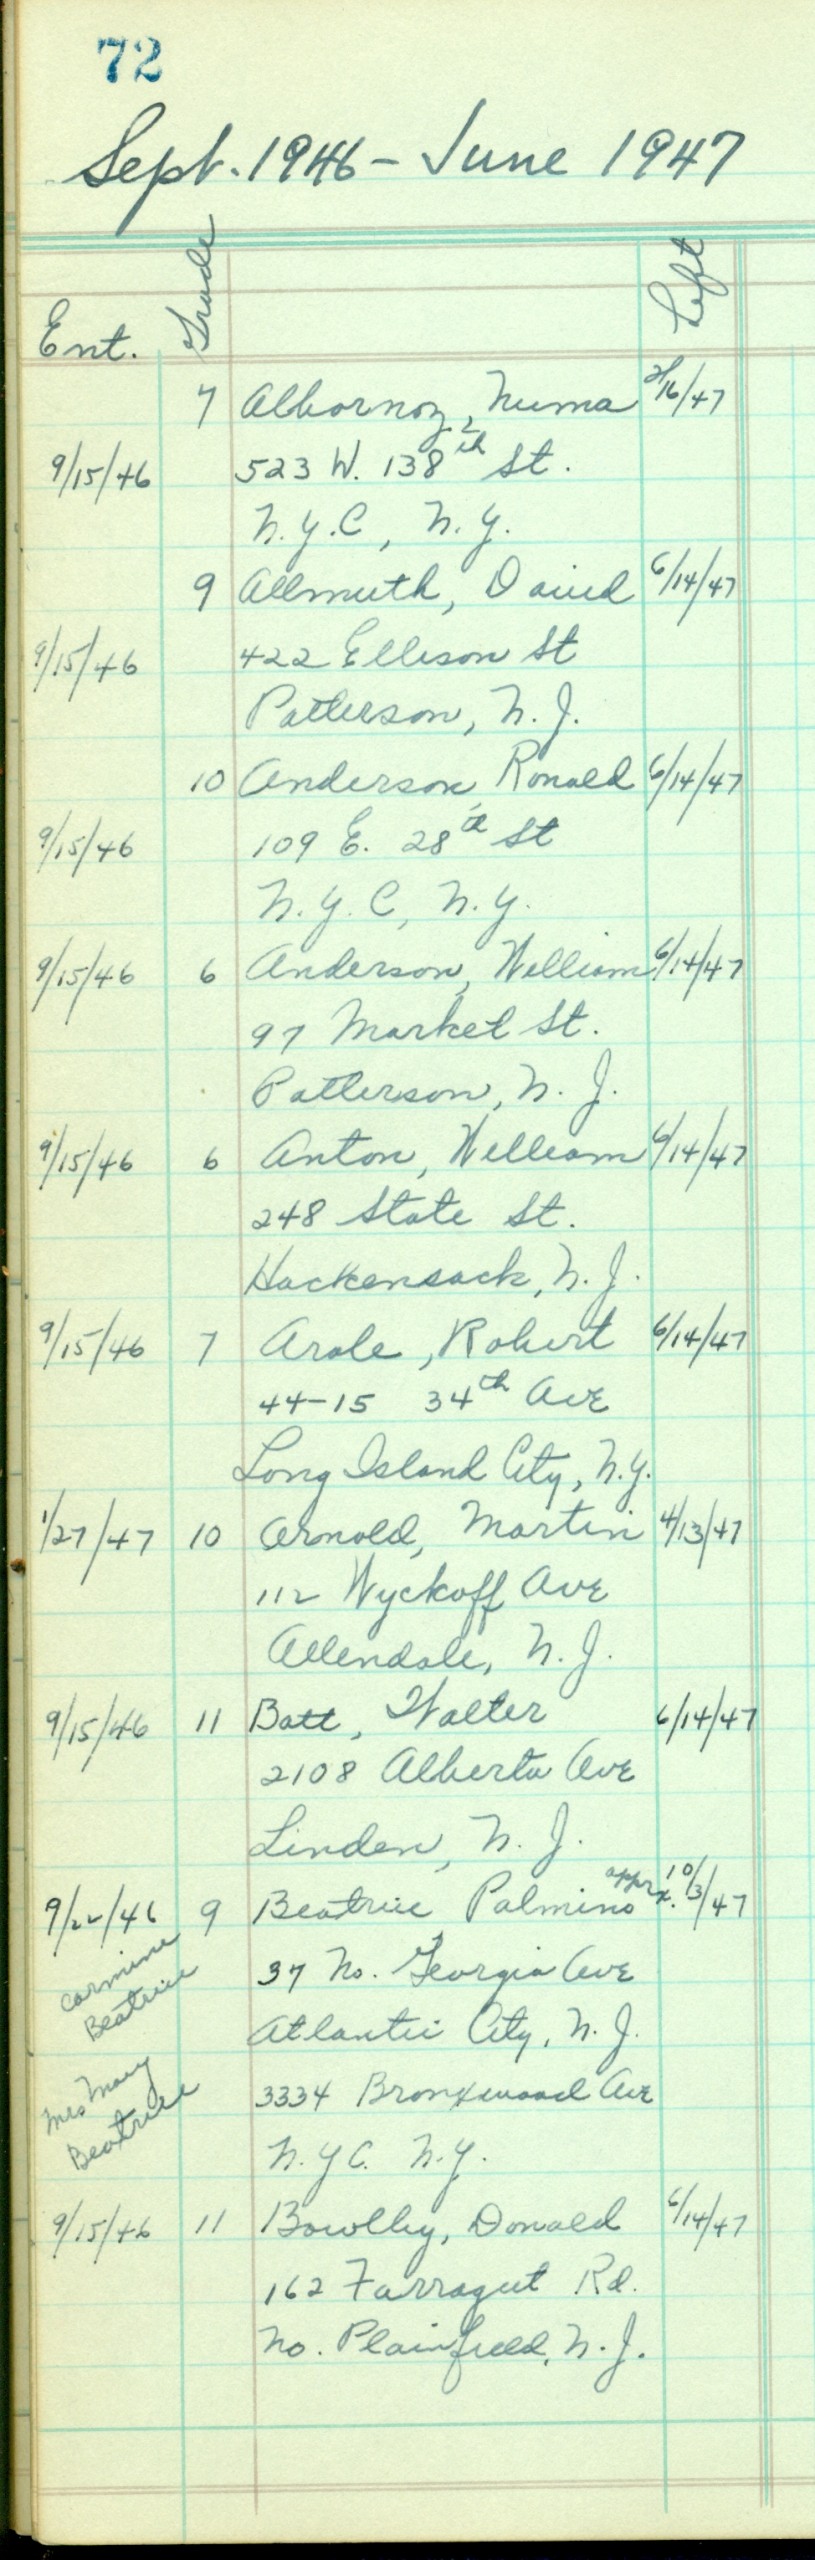 72
Sept. 1946 - June 1947
Ent. Grade Left
7 Albornoz, Numa 2/16/47
9/15/46 523 W. 138th St.
N.Y.C, N.Y.
9 Allmuth, David 6/14/47
9/15/46 422 Ellison St
Patterson, N.J.
10 Anderson, Ronald 6/14/47
9/15/46 109 E. 28th St
N.Y.C, N.Y.
9/15/46 6 Anderson, William 6/14/47
97 Market St.
Patterson, N.J.
9/15/46 6 Anton, William 6/14/47
248 State St.
Hackensack, N.J.
9/15/46 7 Arale, Robert 6/14/47
44-15 34th Ave
Long Island City, N.Y.
1/27/47 10 Arnold, Martin 4/13/47
112 Wyckoff Ave
Allendale, N.J.
9/15/46 11 Batt, Walter 6/14/47
2108 Alberta Ave
Linden, N.J.
9/22/46 9 Beatrice, Palmino apprx. 10/3/47
Carmine
Beatrice
37 No. Georgia Ave
Atlantic City, N.J.
Mrs Mary
Beatrice
3334 Bronxwood Ave
N.Y.C. N.Y.
9/15/46 11 Bowlby, Donald 6/14/47
162 Farragut Rd.
No. Plainfield, N.J.